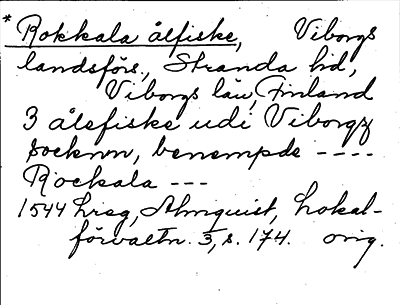 * Rokkala ålfiske, Viborgs
landsförs., Stranda hd,
Viborgs län, Finland
3 ålefiske udi Viborgz
socknnn, benempde ----
Rockala ---
1544 hrsg, Almquist, Lokal-
förvaltn. 3, s. 174. orig.